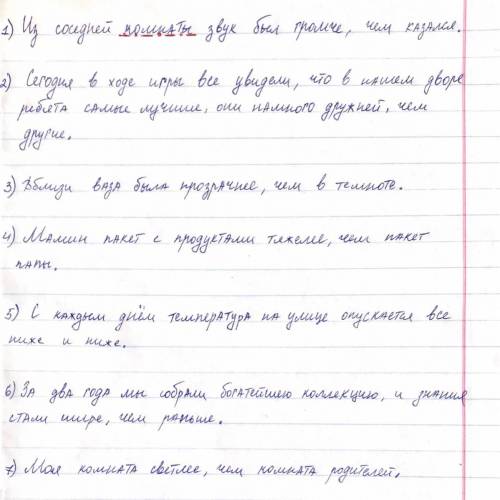 1) Из соседней комнаты звук был громче, чем казался.
2) Сегодня в ходе игры все увидели, что в нашем дворе
ребята самые лучшие, они намного дружней, чем
другие.
3) Вблизи ваза была прозрачнее, чем в темноте.
4) Мамин пакет с продуктами тяжелее, чем пакет
папы.
5) С каждым днём температура на улице опускается все
ниже и ниже.
6) За два года мы собрали богатейшею коллекцию, и знания
стали шире, чем раньше.
7) Моя комната светлее, чем комната родителей.